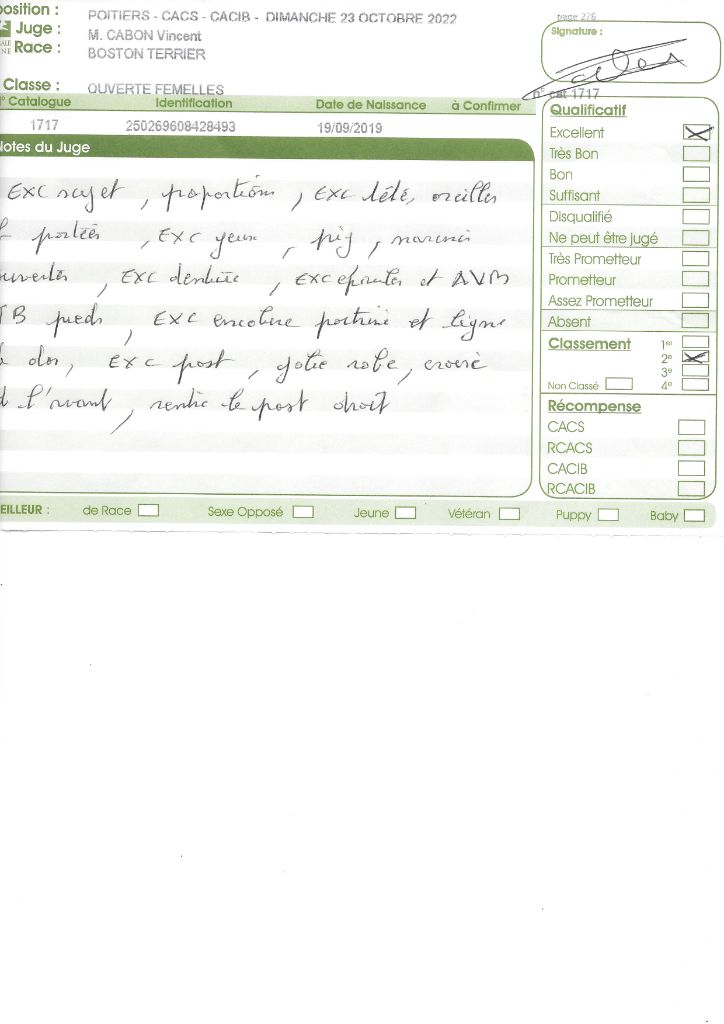 position : POITIERS - CACS - CACIB - DIMANCHE 23 OCTOBRE 2022
page 276
Juge : M. CABON Vincent
Race : BOSTON TERRIER
Signature :
Classe : OUVERTE FEMELLES
n° cat 1717
N° Catalogue Identification Date de Naissance à Confirmer
1717 250269608428493 19/09/2019
Notes du Juge
EXC sujet, proportions, EXC tête, oreilles
portées, EXC yeux, pig, narines
ouvertes, EXC denture, EXC epaules et AVM
TB pieds, EXC encolure poitrine et ligne
dos, EXC post, jolie robe, croise
l'avant, rentre le post droit
Qualificatif
Excellent
Très Bon
Bon
Suffisant
Disqualifié
Ne peut être jugé
Très Prometteur
Prometteur
Assez Prometteur
Absent
Classement 1er
2e
3e
Non Classé 4e
Récompense
CACS
RCACS
CACIB
RCACIB
EILLEUR : de Race Sexe Opposé Jeune Vétéran Puppy Baby